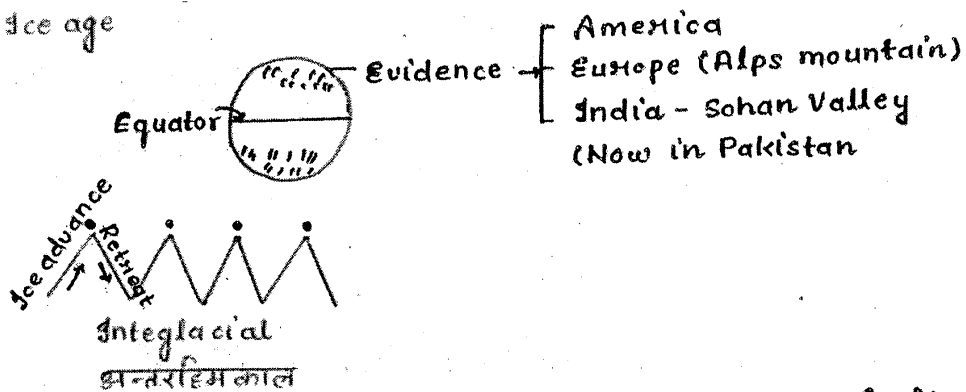 Ice age
America
Evidence → Europe (Alps mountain)
India - Sohan Valley
(Now in Pakistan
Equator
Ice advance
Retreat
Integlacial
अन्तरहिमकाल